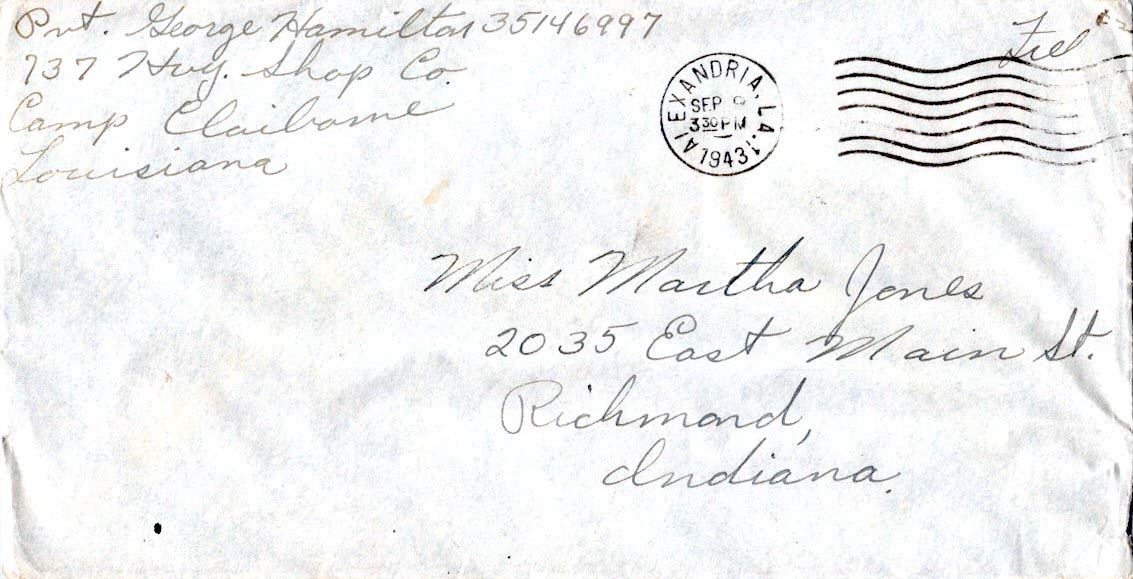 Pvt. George Hamilton 35146997
737 Hvy. Shop Co.
Camp Claiborne
Louisiana
Free
ALEXANDRIA, LA.
SEP
3 30 PM
1943
Miss Martha Jones
2035 East Main St.
Richmond,
Indiana.